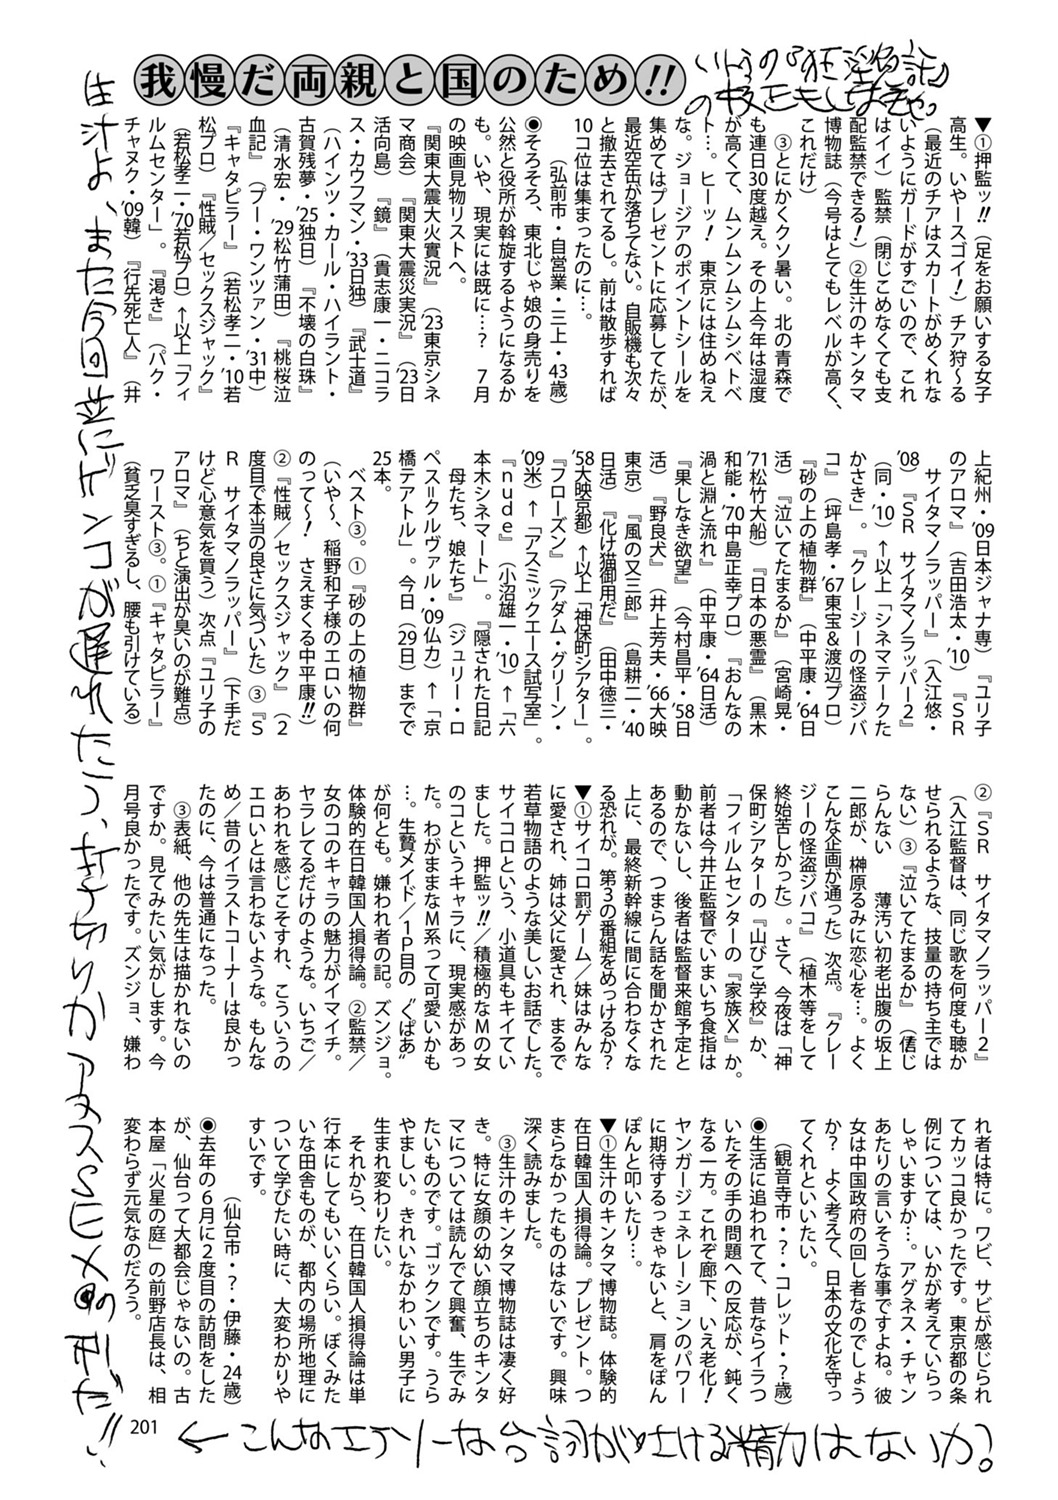 我慢だ両親と国のため!!
博物誌(今号はとてもレベルが高く、
これだけ)
③とにかくクソ暑い。北の青森で
も連日30度越え。その上今年は湿度
が高くて、ムンムンムシムシベトベ
ト…。ヒーッ! 東京には住めねえ
な。ジョージアのポイントシールを
集めてはプレゼントに応募してたが、
最近空缶が落ちてない。自販機も次々
と撤去されてるし。前は散歩すれば
10コ位は集まったのに…。
(弘前市・自営業・三上・43歳)
◉そろそろ、東北じゃ娘の身売りを
公然と役所が斡旋するようになるか
も。いや、現実には既に…? 7月
の映画見物リストへ。
『関東大震大火實況』('23東京シネ
マ商会)『関東大震災実況』('23日
活向島)『鏡』(貴志康一・ニコラ
ス・カウフマン・'33日独)『武士道』
(ハインツ・カール・ハイラント・
古賀残夢・'25独日)『不壊の白珠』
(清水宏・'29松竹蒲田)『桃桜泣
血記』(プー・ワンツァン・'31中)
『キャタピラー』(若松孝二・'10若
松プロ)『性賊/セックスジャック』
(若松孝二・'70若松プロ)↑以上「フィ
ルムセンター」。『渇き』(パク・
チャヌク・'09韓)『行先死亡人』(井
上紀州・'09日本ジャナ専)『ユリ子
のアロマ』(吉田浩太・'10)『SR
サイタマノラッパー』(入江悠・
'08)『SR サイタマノラッパー2』
(同・'10)↑以上「シネマテークた
かさき」。『クレージーの怪盗ジバ
コ』(坪島孝・'67東宝&渡辺プロ)
『砂の上の植物群』(中平康・'64日
活)『泣いてたまるか』(宮崎晃・
'71松竹大船)『日本の悪霊』(黒木
和能・'70中島正幸プロ)『おんなの
渦と淵と流れ』(中平康・'64日活)
『果しなき欲望』(今村昌平・'58日
活)『野良犬』(井上芳夫・'66大映
東京)『風の又三郎』(島耕二・'40
日活)『化け猫御用だ』(田中徳三・
'58大映京都)↑以上「神保町シアター」。
『フローズン』(アダム・グリーン・
'09米)↑「アスミックエース試写室」。
『nude』(小沼雄一・'10)↑「六
本木シネマート」。『隠された日記
母たち、娘たち』(ジュリー・ロ
ペス=クルヴァル・'09仏カ)↑「京
橋テアトル」。今日(29日)までで
25本。
ベスト③。①『砂の上の植物群』
(いや~、稲野和子様のエロいの何
のって~! さえまくる中平康!!)
②『性賊/セックスジャック』(2
度目で本当の良さに気づいた)③『S
R サイタマノラッパー』(下手だ
けど心意気を買う)次点『ユリ子の
アロマ』(ちと演出が臭いのが難点)
ワースト③。①『キャタピラー』
(貧乏臭すぎるし、腰も引けている)
②『SR サイタマノラッパー2』
(入江監督は、同じ歌を何度も聴か
せられるような、技量の持ち主では
ない)③『泣いてたまるか』(信じ
らんない 薄汚い初老出腹の坂上
二郎が、榊原るみに恋心を…。よく
こんな企画が通った)次点。『クレー
ジーの怪盗ジバコ』(植木等をして
終始苦しかった)。さて、今夜は「神
保町シアターの『山びこ学校』か、
「フィルムセンターの『家族X』か。
前者は今井正監督でいまいち食指は
動かないし、後者は監督来館予定と
あるので、つまらん話を聞かされた
上に、最終新幹線に間に合わなくな
る恐れが。第3の番組をめっけるか?
▼①サイコロ罰ゲーム/妹はみんな
に愛され、姉は父に愛され、まるで
若草物語のような美しいお話でした。
サイコロという、小道具もキイてい
ました。押監ッ!!/積極的なMの女
のコというキャラに、現実感があっ
た。わがままなM系って可愛いかも
…。生贄メイド/1P目の〝くぱあ〟
が何とも。嫌われ者の記。ズンジョ。
体験的在日韓国人損得論。②監禁/
女のコのキャラの魅力がイマイチ。
ヤラレてるだけのような。いちご/
あわれを感じこそすれ、こういうの
エロいとは言わないような。もんな
め/昔のイラストコーナーは良かっ
たのに、今は普通になった。
③表紙、他の先生は描かれないの
ですか。見てみたい気がします。今
月号良かったです。ズンジョ、嫌わ
れ者は特に。ワビ、サビが感じられ
てカッコ良かったです。東京都の条
例については、いかが考えていらっ
しゃいますか…。アグネス・チャン
あたりの言いそうな事ですよね。彼
女は中国政府の回し者なのでしょう
か? よく考えて、日本の文化を守っ
てくれといいたい。
(観音寺市・?・コレット・?歳)
◉生活に追われてて、昔ならイラつ
いたその手の問題への反応が、鈍く
なる一方。これぞ廊下、いえ老化!
ヤンガージェネレーションのパワー
に期待するっきゃないと、肩をぽん
ぽんと叩いたり…。
▼①生汁のキンタマ博物誌。体験的
在日韓国人損得論。プレゼント。つ
まらなかったものはないです。興味
深く読みました。
それから、在日韓国人損得論は単
行本にしてもいいくらい。ぼくみた
いな田舎ものが、都内の場所地理に
ついて学びたい時に、大変わかりや
すいです。
(仙台市・?・伊藤・24歳)
◉去年の6月に2度目の訪問をした
が、仙台って大都会じゃないの。古
本屋「火星の庭」の前野店長は、相
変わらず元気なのだろう。
201